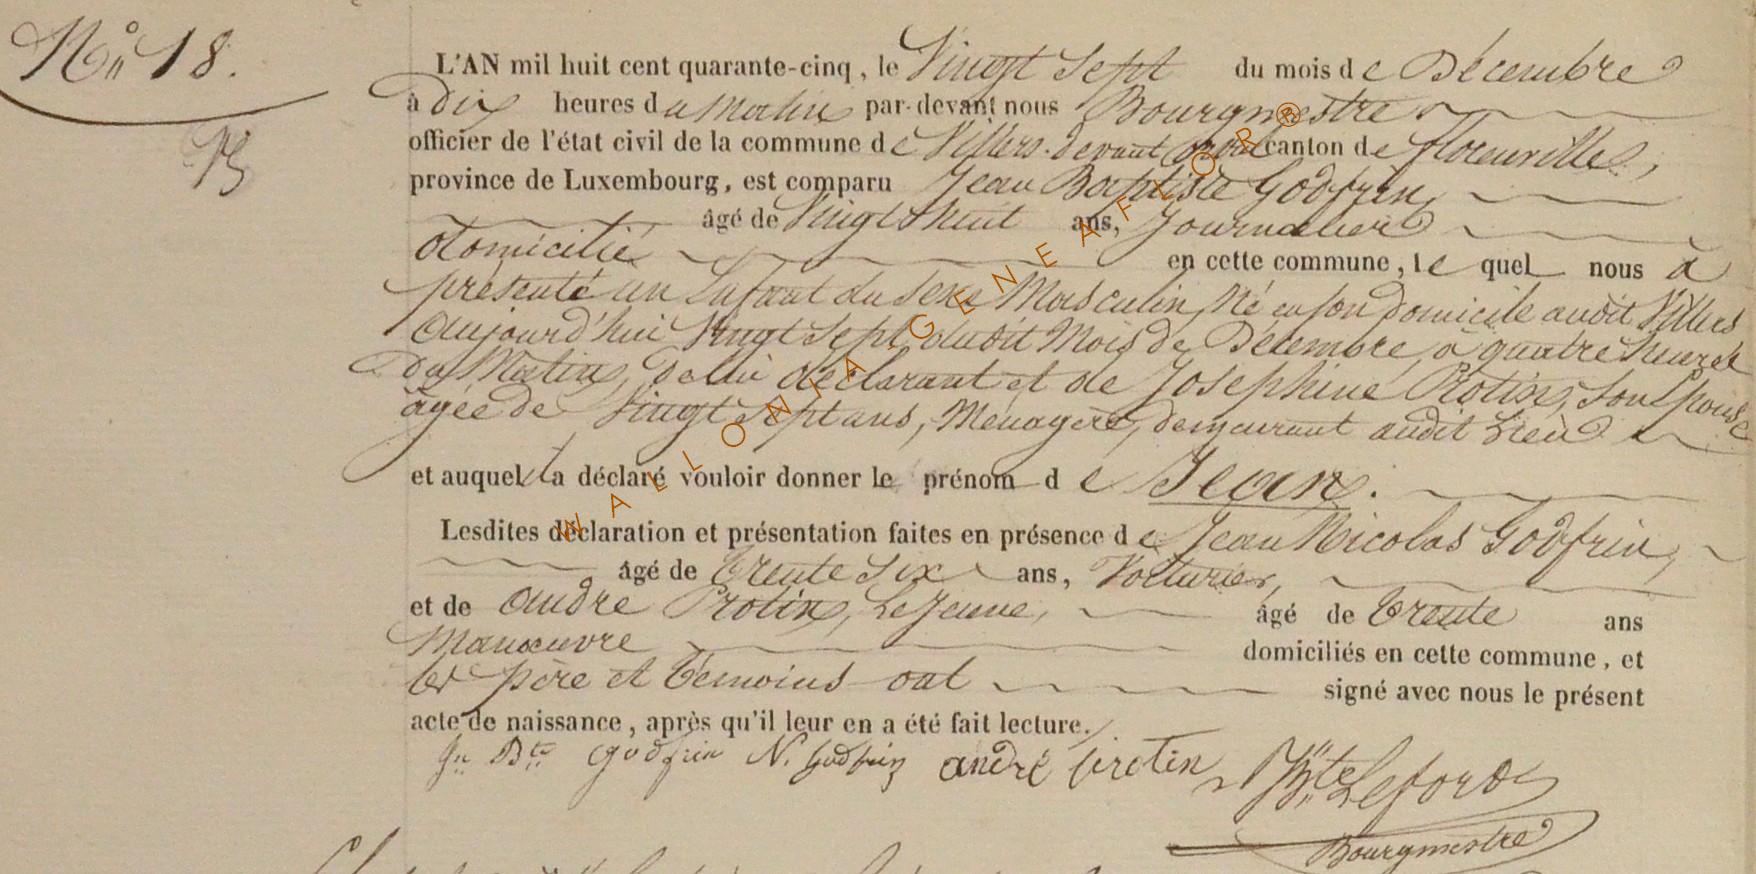 N° 18.
L'AN mil huit cent quarante-cinq, le Vingt Sept du mois de Décembre
à Dix heures du Matin par-devant nous Bourgmestre
officier de l'état civil de la commune de Villers-devant Orval canton de florenville,
province de Luxembourg, est comparu Jean Baptiste Godfrin,
âgé de Vingt huit ans, Journalier
domicilié en cette commune, lequel nous à
présenté un Enfant du sexe Masculin, Né en son domicile audit Villers
Aujourd'hui Vingt Sept dudit Mois de Décembre, à quatre heures
Du Matin, de lui déclarant et de Joséphine Protin, son Epouse
âgée de Vingt Sept ans, Ménagère, demeurant audit Lieu
et auquel il a déclaré vouloir donner le prénom de Jean.
Lesdites déclaration et présentation faites en présence de Jean Nicolas Godfrin,
âgé de Trente Six ans, Voiturier,
et de André Protin, Le Jeune, âgé de Trente ans
Manœuvre domiciliés en cette commune, et
les père et témoins ont signé avec nous le présent
acte de naissance, après qu'il leur en a été fait lecture.
Jn Bte godfrin N. godfrin andré protin JBte Lefort
Bourgmestre
WALLONIA GENEAFLOR®